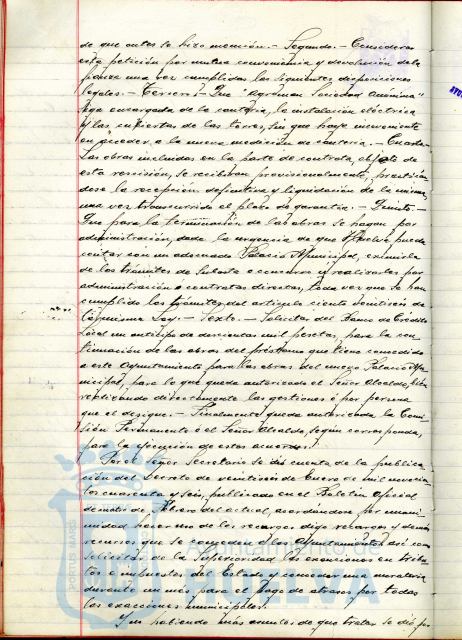 de que antes se hizo mención.- Segundo.- Considerar
esta petición por mutua conveniencia y devolución de la
fianza una vez cumplidas las siguientes disposiciones
legales.- Tercero.- Que "Agroman Sociedad Anónima"
siga encargada de la cantería, la instalación eléctrica
y las cubiertas de las torres, sin que haya inconveniente
en acceder a la nueva medición de cantería.- Cuarto.-
Las obras incluidas en la parte de contrata, objeto de
esta rescisión, se recibirán provisionalmente, practicán
dose la recepción definitiva y liquidación de la misma,
una vez transcurrido el plazo de garantía.- Quinto.-
Que para la terminación de las obras se hagan por
administración, dada la urgencia de que Huelva pueda
contar con un adecuado Palacio Municipal, eximirla
de los trámites de Subasta o concurso y realizarlas por
administración o contratas directas, toda vez que se han
cumplido los trámites del artículo ciento veintiseis de
la misma Ley.- Sexto.- Solicitar del Banco de Crédito
Local un anticipo de doscientas mil pesetas, para la con
tinuación de las obras del préstamo que tiene concedido
a este Ayuntamiento para las obras del nuevo Palacio Mu
nicipal, para lo que queda autorizado el Señor Alcalde, bien
realizando directamente las gestiones o por persona
que el designe.- Finalmente queda autorizada la Comi
sión Permanente o el Señor Alcalde, según corresponda,
para la ejecución de estos acuerdos.
Por el Señor Secretario se dió cuenta de la publica
ción del Decreto de veinticinco de Enero de mil novecien
tos cuarenta y seis, publicado en el Boletín Oficial
de Febrero del actual, acordándose por unani
midad hacer uso de los recargos digo recargos y demás
recursos que se conceden a los Ayuntamientos así como
solicitar de la Superioridad las exenciones en tribu
tos e impuestos del Estado y conceder una moratoria
durante un mes para el pago de atrasos por todas
las exacciones municipales.
Y no habiendo más asuntos de que tratar se dió por
Ayuntamiento de
HUELVA
PORTUS MARIS